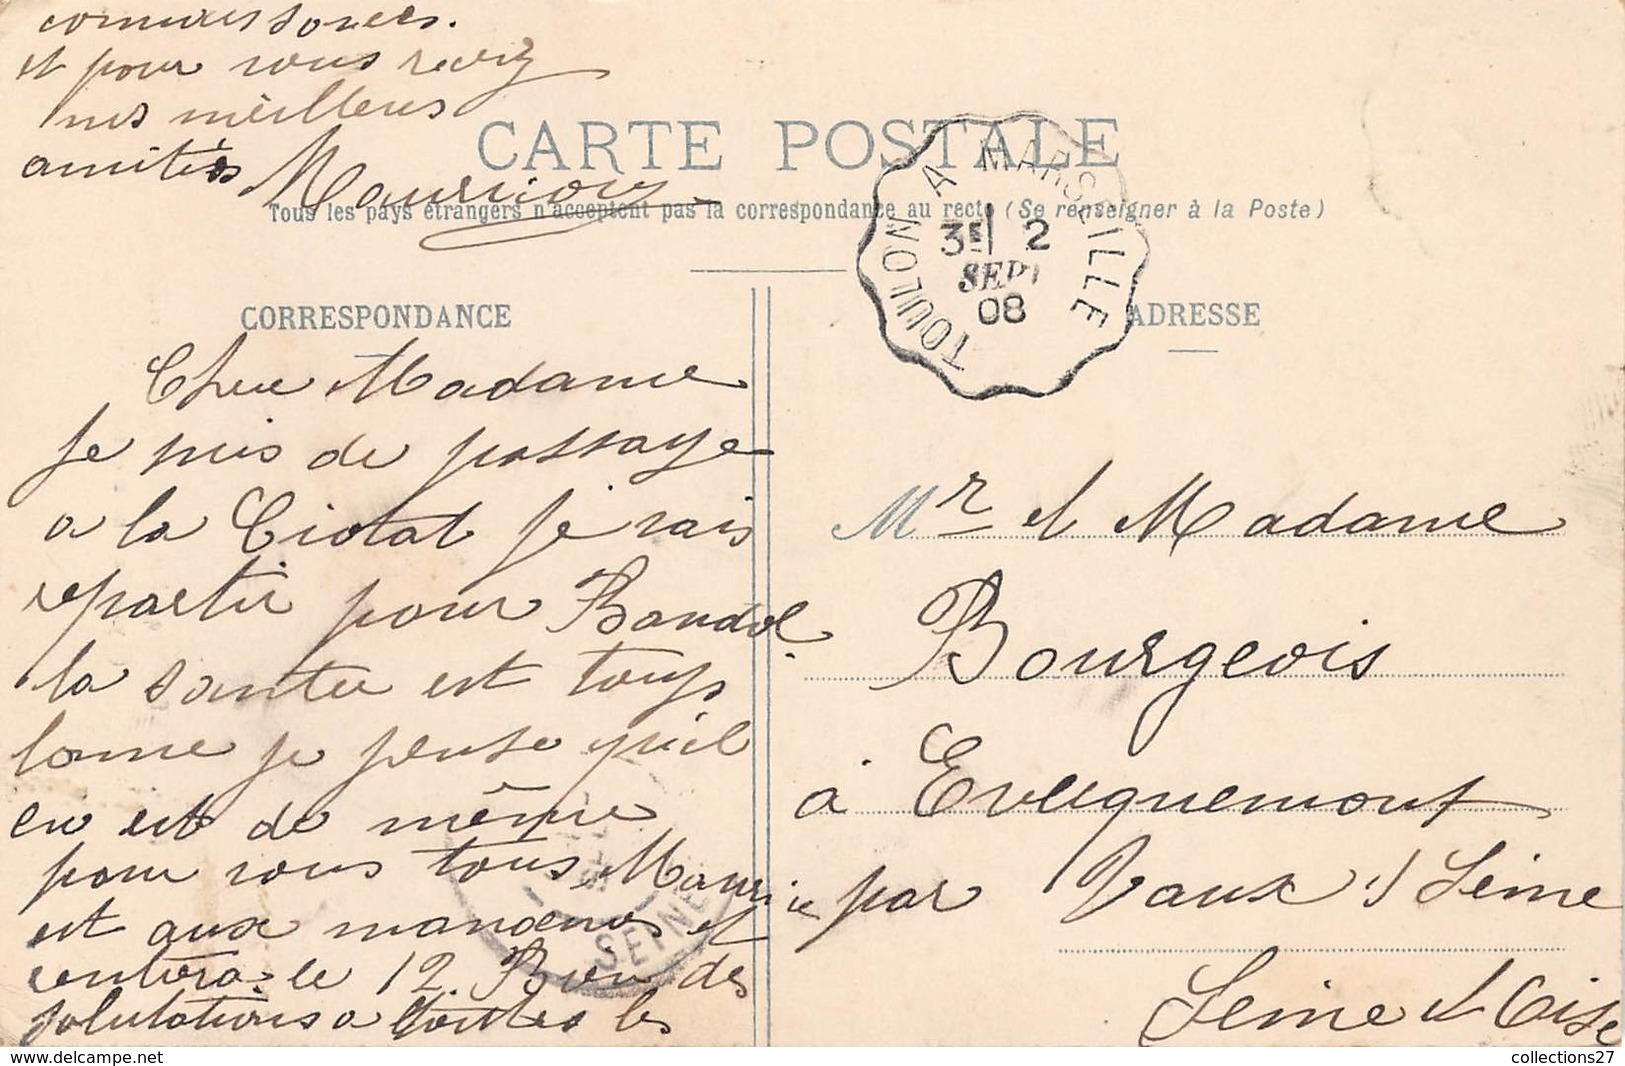 connaissances.
et pour vous recevez
mes meilleures
amitiés
CARTE POSTALE
Tous les pays étrangers n'acceptent pas la correspondance au recto (Se renseigner à la Poste)
TOULON A MARSEILLE
3E 2
SEPT
08
CORRESPONDANCE
ADRESSE
Chere Madame
Je suis de passage
a la Ciotat Je vais
repartir pour Bandol.
la santee est toujs
bonne je pense qu'il
en est de même
pour vous tous, Maurice
est aux manœuvres et
rentrera le 12. Bien des
salutations a toutes les
Mr et Madame
Bourgeois
à Evecquemont
par Vaux s/ Seine
Seine et Oise
SEINE
collections27